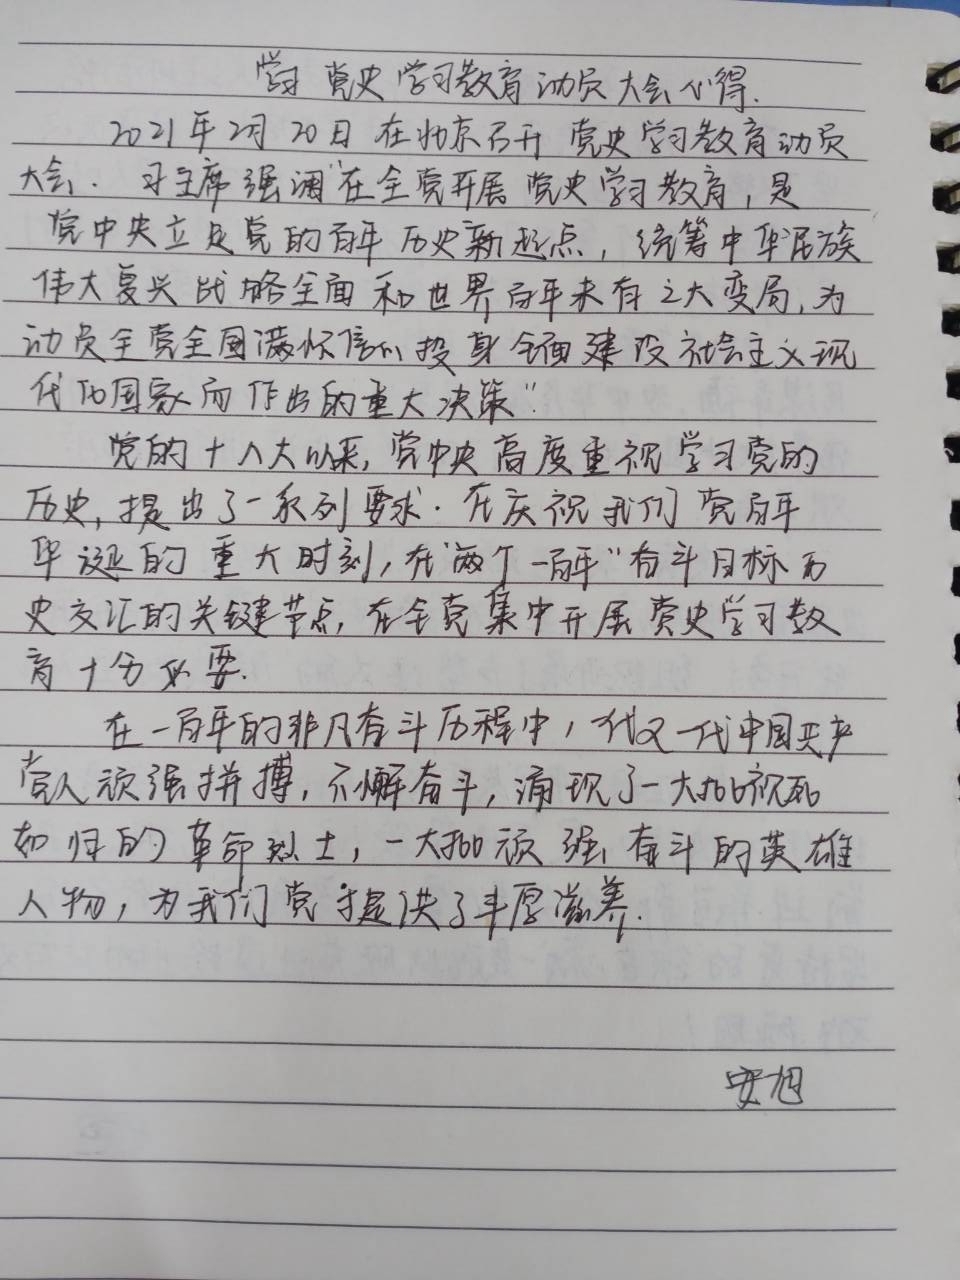 学习党史学习教育动员大会心得.
2021年2月20日在北京召开党史学习教育动员
大会. 习主席强调"在全党开展党史学习教育,是
党中央立足党的百年历史新起点,统筹中华民族
伟大复兴战略全面和世界百年未有之大变局,为
动员全党全国满怀信心投身全面建设社会主义现
代化国家而作出的重大决策"
党的十八大以来,党中央高度重视学习党的
历史,提出了一系列要求.在庆祝我们党百年
华诞的重大时刻,在"两个一百年"奋斗目标历
史交汇的关键节点,在全党集中开展党史学习教
育十分必要.
在一百年的非凡奋斗历程中,一代又一代中国共产
党人顽强拼搏,不懈奋斗,涌现了一大批视死
如归的革命烈士,一大批顽强奋斗的英雄
人物,为我们党提供了丰厚滋养.
安旭